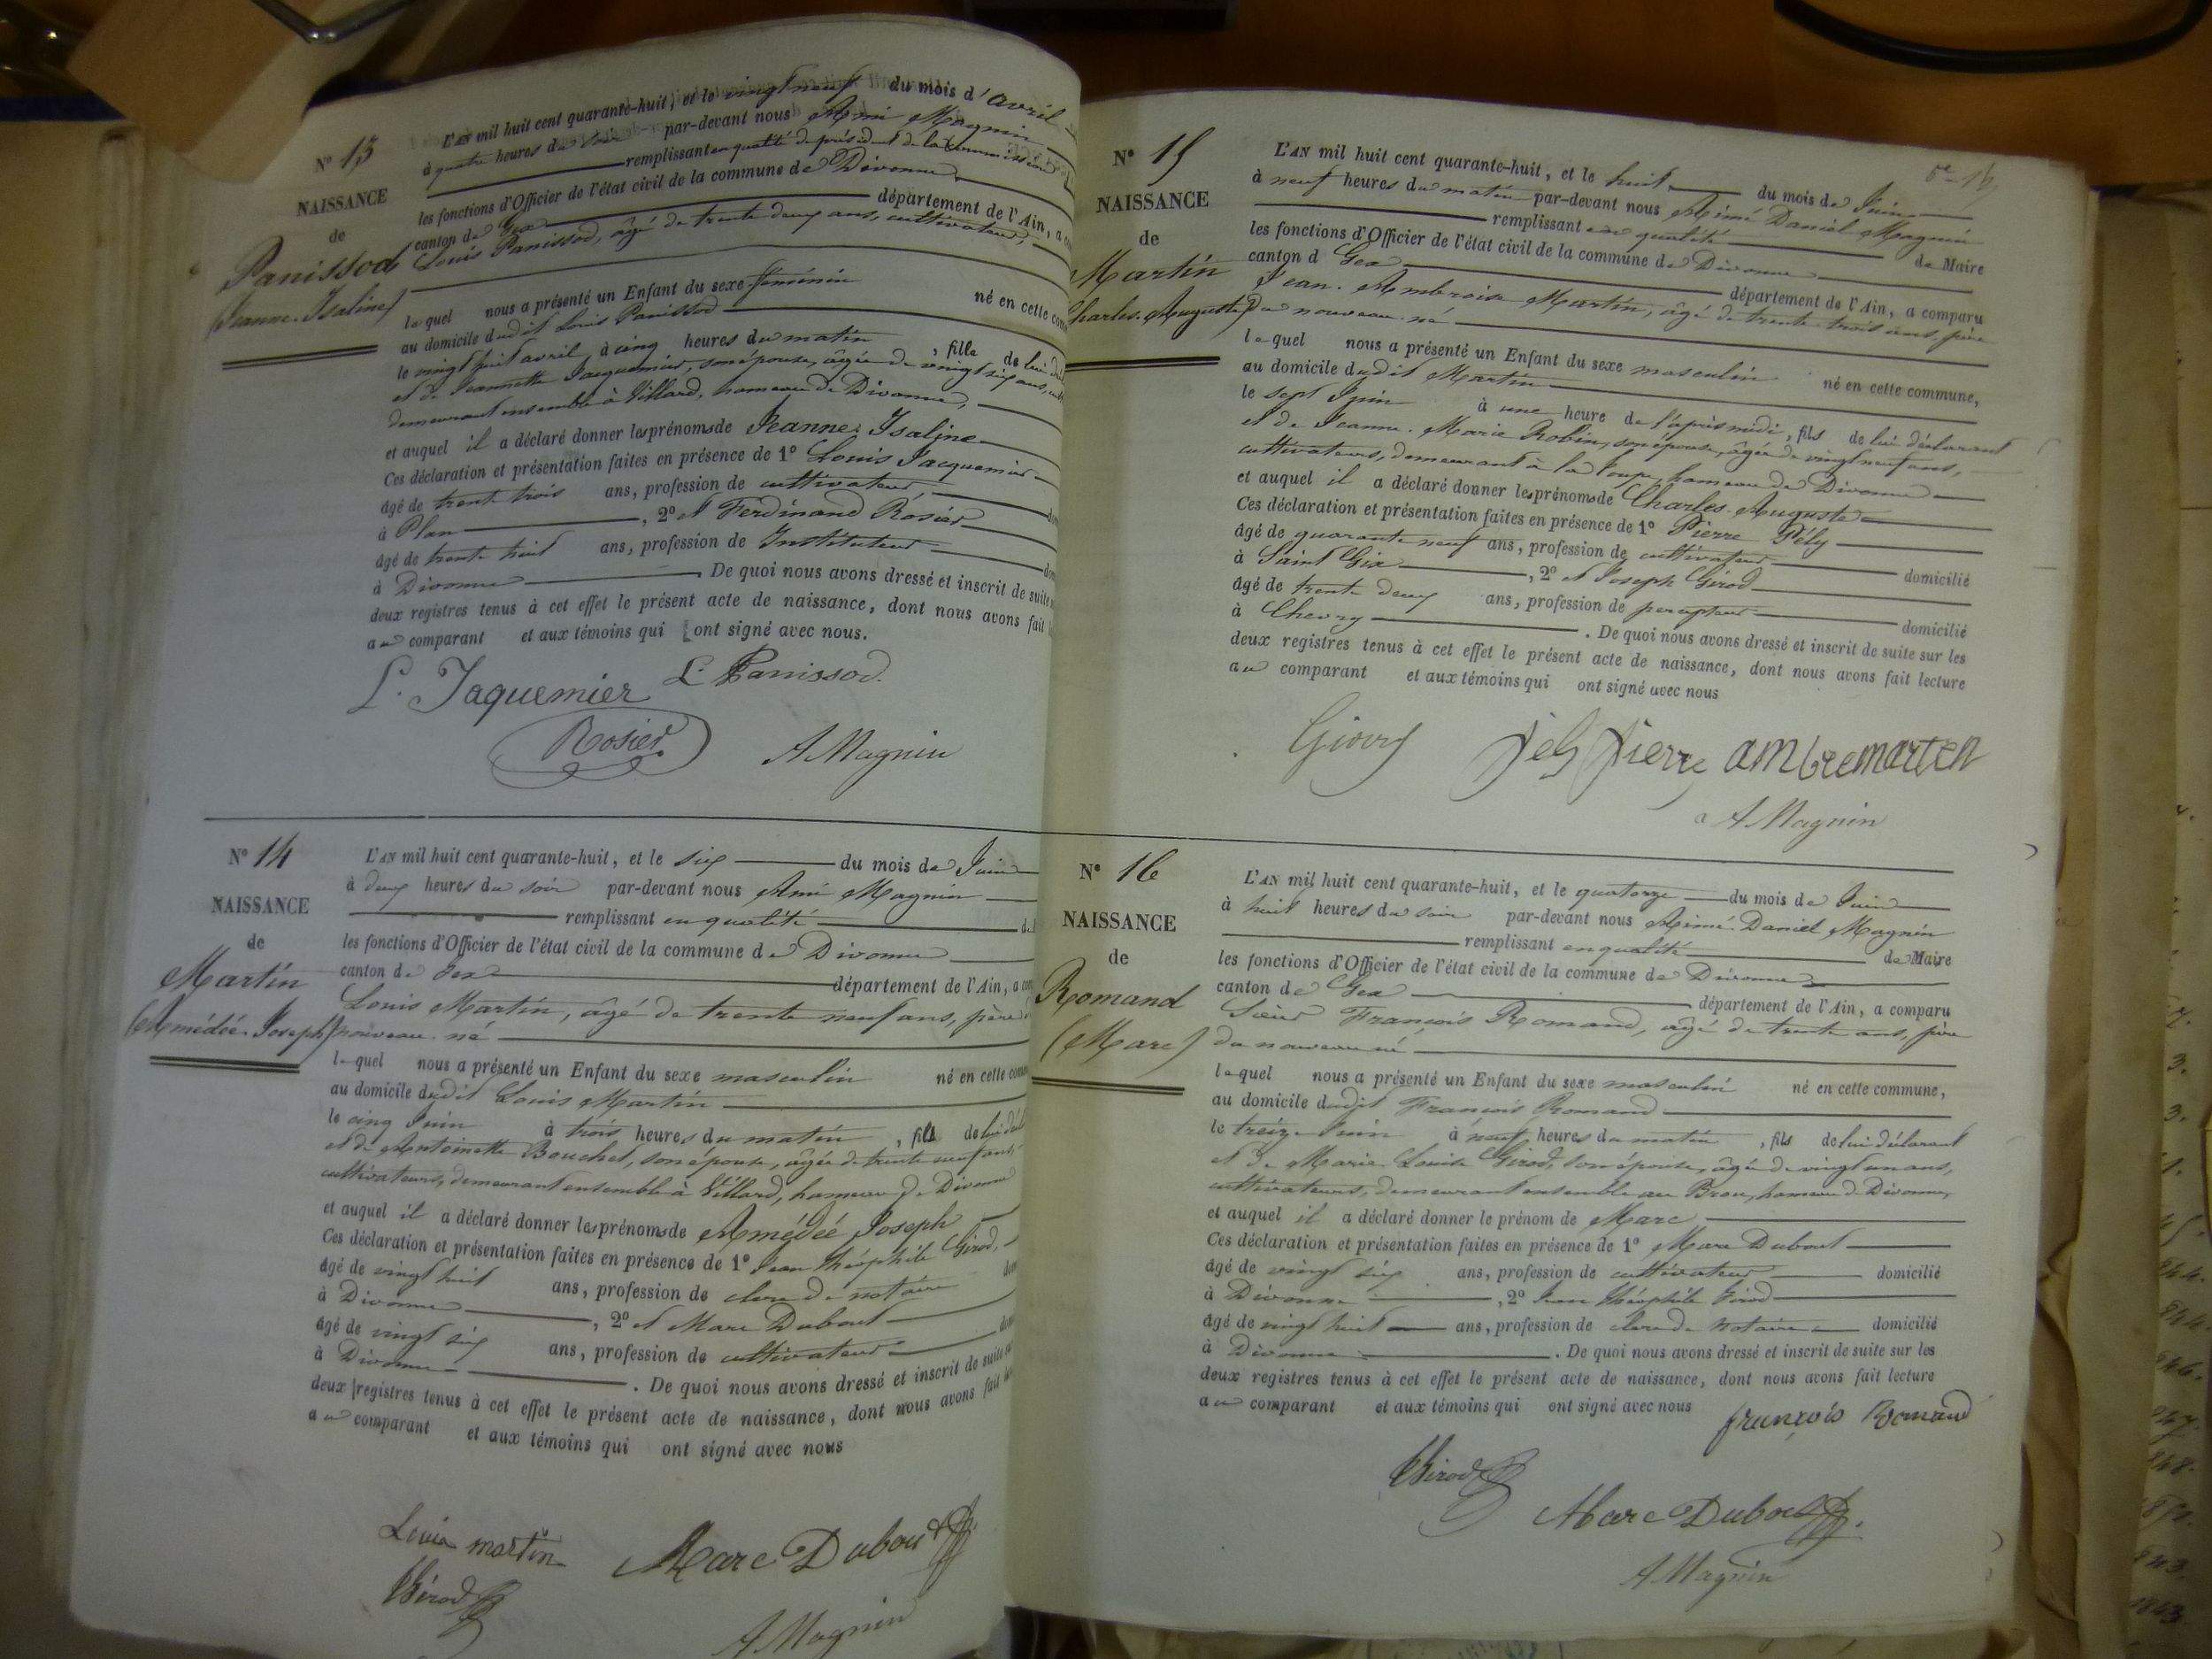 N° 13
NAISSANCE
de
Panissod
(Jeanne Isaline)
L'AN mil huit cent quarante-huit, et le vingt neuf du mois d'avril
à quatre heures du soir par-devant nous Ami Magnin
remplissant en qualité de président de la commission
les fonctions d'Officier de l'état civil de la commune de Divonne
canton de Gex département de l'Ain, a
Louis Panissod, âgé de trente deux ans, cultivateur,
lequel nous a présenté un Enfant du sexe féminin né en cette
au domicile dudit Louis Panissod
le vingt huit avril, à cinq heures du matin, fille de lui
et de Jeannette Jacquemier, son épouse, âgée de vingt six ans,
demeurant ensemble à Villard, hameau de Divonne,
et auquel il a déclaré donner les prénoms de Jeanne Isaline
Ces déclaration et présentation faites en présence de 1° Louis Jacquemier
âgé de trente trois ans, profession de cultivateur
à Plan, 2° et Ferdinand Rosier
âgé de trente huit ans, profession de Instituteur
à Divonne. De quoi nous avons dressé et inscrit de suite
deux registres tenus à cet effet le présent acte de naissance, dont nous avons fait
au comparant et aux témoins qui ont signé avec nous.
L. Jaquemier L. Panissod.
Rosier A Magnin
N° 14
NAISSANCE
de
Martin
(Amédée Joseph)
L'AN mil huit cent quarante-huit, et le six du mois de Juin
à deux heures du soir par-devant nous Ami Magnin
remplissant en qualité
les fonctions d'Officier de l'état civil de la commune de Divonne
canton de Gex département de l'Ain, a
Louis Martin, âgé de trente neuf ans, père
nouveau né
lequel nous a présenté un Enfant du sexe masculin né en cette
au domicile dudit Louis Martin
le cinq Juin à trois heures du matin, fils de lui
et de Antoinette Bouchet, son épouse, âgée de trente neuf ans,
cultivateurs, demeurant ensemble à Villard, hameau de Divonne
et auquel il a déclaré donner les prénoms de Amédée Joseph
Ces déclaration et présentation faites en présence de 1° Jean Théophile Girod,
âgé de vingt huit ans, profession de clerc de notaire
à Divonne, 2° et Marc Dubout
âgé de vingt six ans, profession de cultivateur
à Divonne. De quoi nous avons dressé et inscrit de suite
deux registres tenus à cet effet le présent acte de naissance, dont nous avons fait
au comparant et aux témoins qui ont signé avec nous
Louis martin Marc Dubout
Girod
A Magnin
N° 15
NAISSANCE
de
Martin
Charles Auguste)
L'AN mil huit cent quarante-huit, et le huit du mois de Juin
à neuf heures du matin par-devant nous Aimé Daniel Magnin
remplissant en qualité de Maire
les fonctions d'Officier de l'état civil de la commune de Divonne
canton d Gex département de l'Ain, a comparu
Jean Ambroise Martin, âgé de trente trois ans, père
du nouveau né
lequel nous a présenté un Enfant du sexe masculin né en cette commune,
au domicile dudit Martin
le sept Juin à une heure de l'après midi, fils de lui déclarant
et de Jeanne Marie Robin, son épouse, âgée de vingt neuf ans,
cultivateurs, demeurant à la hameau de Divonne
et auquel il a déclaré donner les prénoms de Charles Auguste
Ces déclaration et présentation faites en présence de 1° Pierre Pély
âgé de quarante neuf ans, profession de cultivateur domicilié
à Saint Gix, 2° et Joseph Girod
âgé de trente deux ans, profession de percepteur domicilié
à Chevry. De quoi nous avons dressé et inscrit de suite sur les
deux registres tenus à cet effet le présent acte de naissance, dont nous avons fait lecture
au comparant et aux témoins qui ont signé avec nous
Pierre
A Magnin
N° 16
NAISSANCE
de
Romand
(Marc)
L'AN mil huit cent quarante-huit, et le quatorze du mois de Juin
à huit heures du soir par-devant nous Aimé Daniel Magnin
remplissant en qualité de Maire
les fonctions d'Officier de l'état civil de la commune de Divonne
canton de Gex département de l'Ain, a comparu
Sieur François Romand, âgé de trente ans, père
du nouveau né
lequel nous a présenté un Enfant du sexe masculin né en cette commune,
au domicile dudit François Romand
le treize Juin à neuf heures du matin, fils de lui déclarant
et de Marie Louise Girod, son épouse, âgée de vingt un ans,
cultivateurs, demeurant ensemble au Brou, hameau de Divonne,
et auquel il a déclaré donner le prénom de Marc
Ces déclaration et présentation faites en présence de 1° Marc Dubout
âgé de vingt six ans, profession de cultivateur domicilié
à Divonne, 2° Jean Théophile Girod
âgé de vingt huit ans, profession de clerc de notaire domicilié
à Divonne. De quoi nous avons dressé et inscrit de suite sur les
deux registres tenus à cet effet le présent acte de naissance, dont nous avons fait lecture
au comparant et aux témoins qui ont signé avec nous
françois Romand
Girod
Marc Dubout
A Magnin